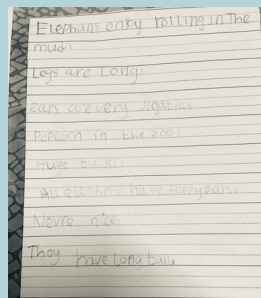 Elephans enby rolling in The
mud.
Legs are Long.
ears are very
Popcorn in the zoo.
Huge
All have years.
nice.
They have long tail